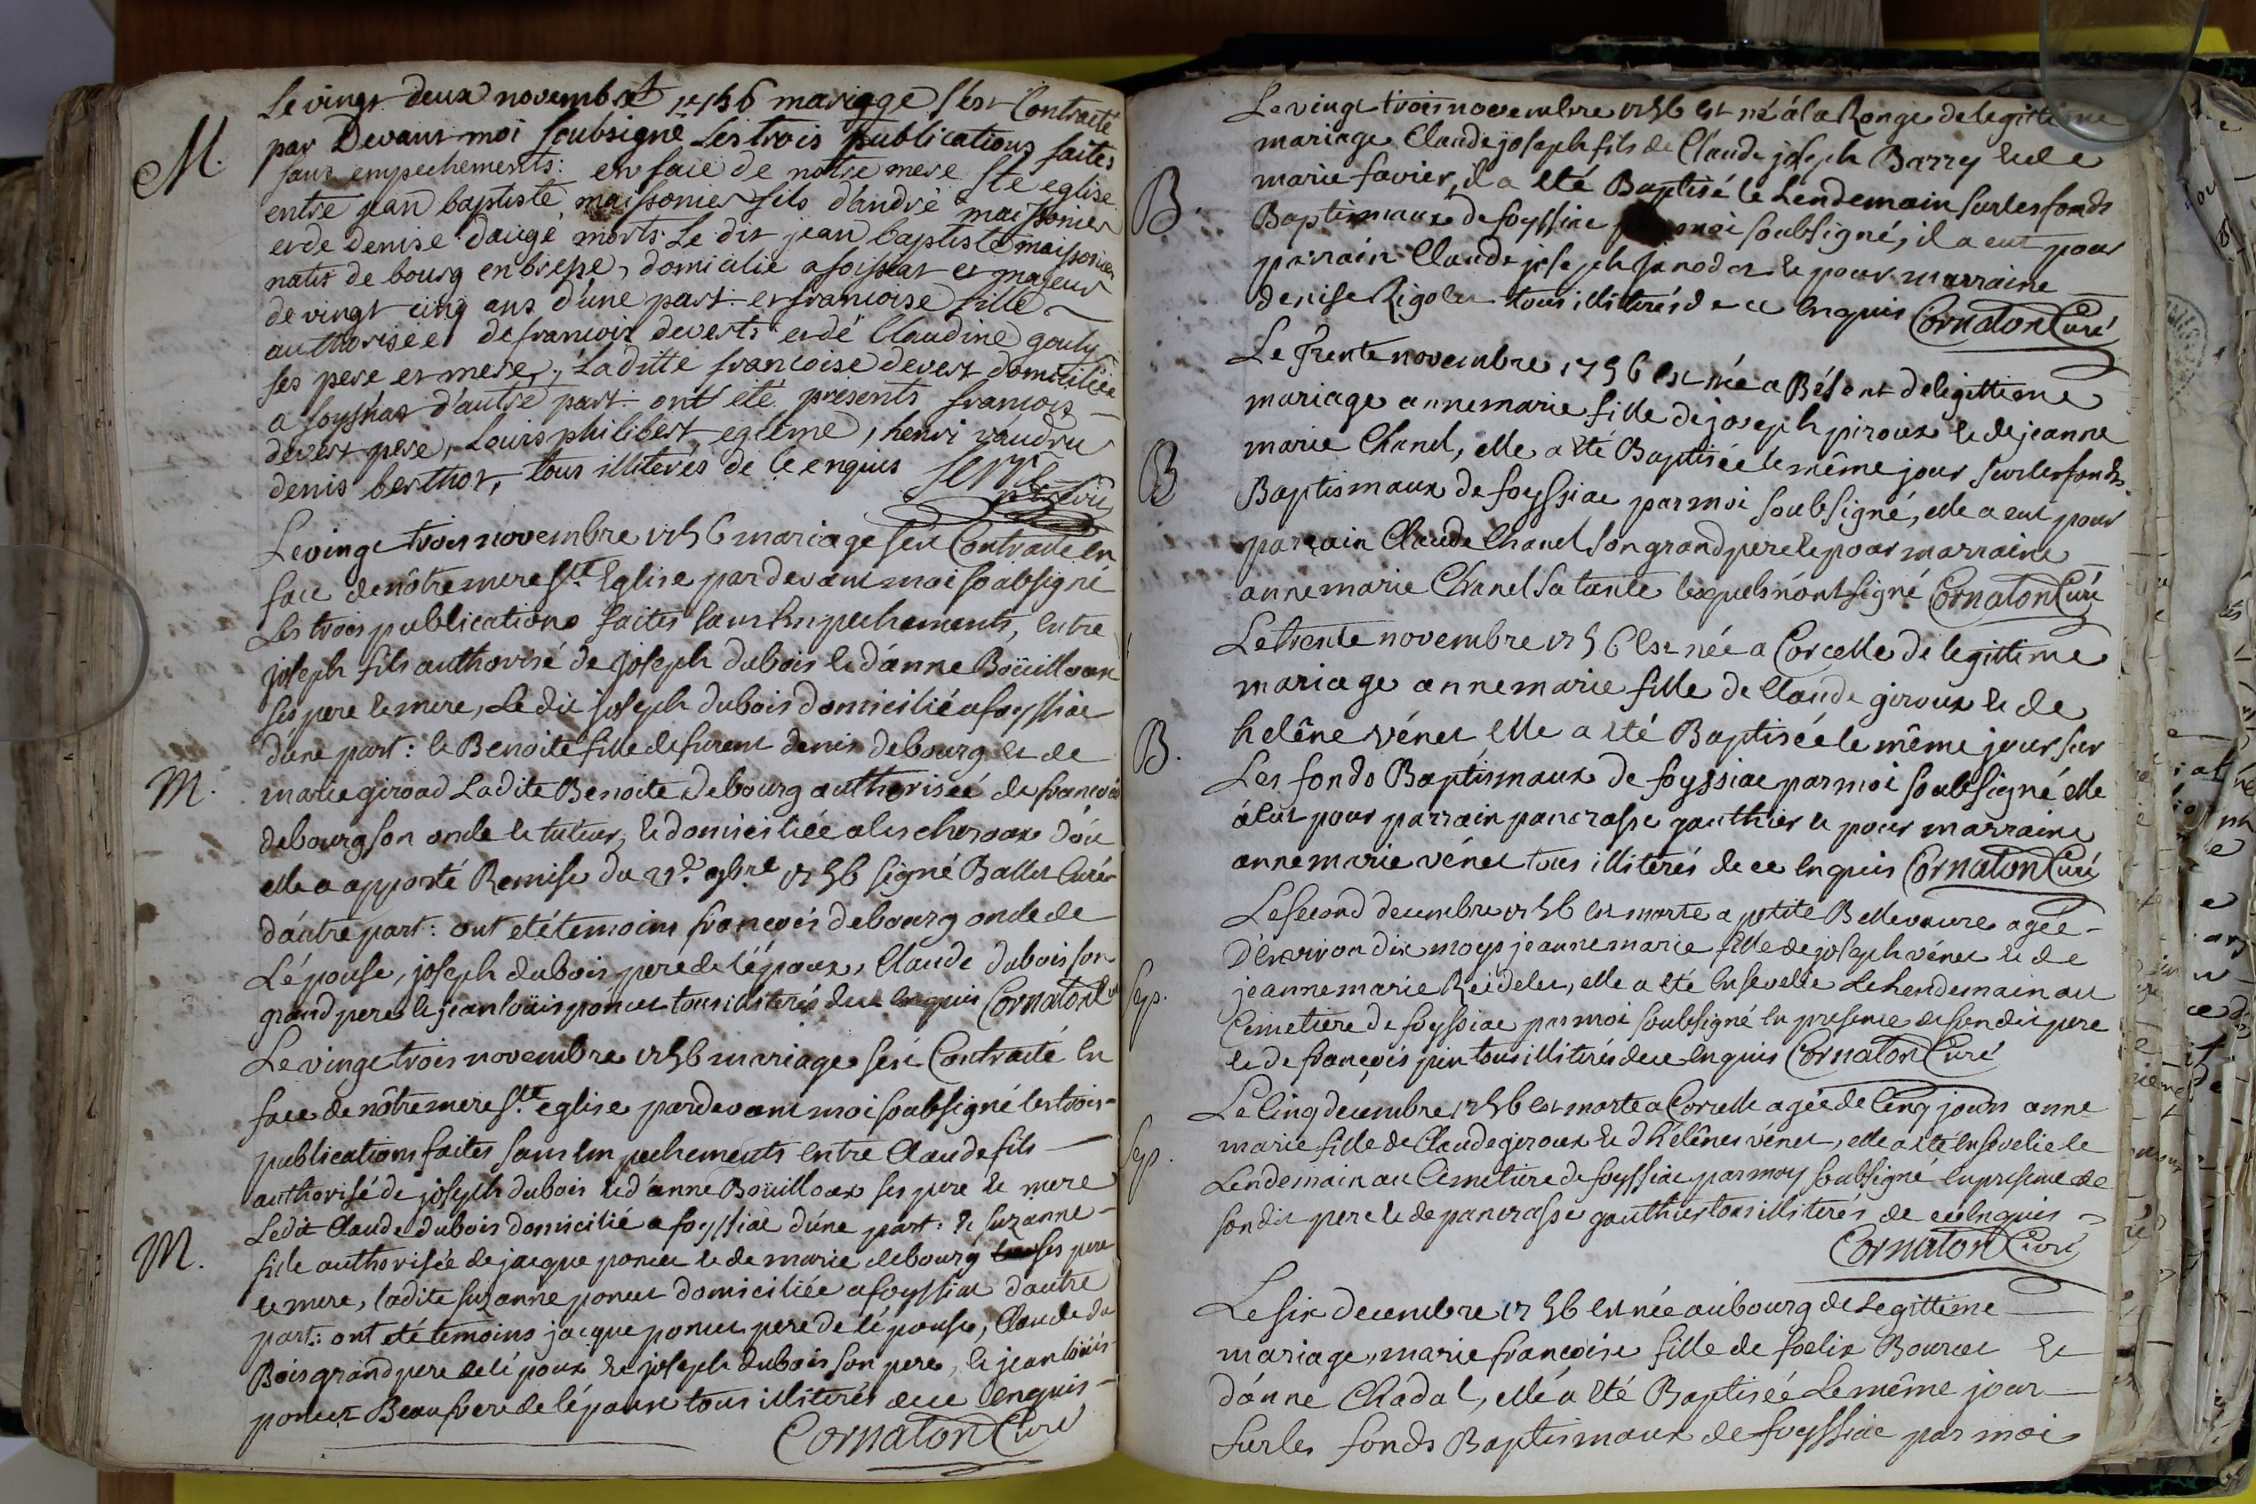 Le vingt deux novembre 1756 mariage s'est Contracté
par Devant moi soubsigné Les trois publications faites
M. sans empechements: en face de notre mere Ste eglise
entre jean baptiste maissonier fils d'andré maissonier
et de denise daugé morts. Le dit jean baptiste maissonier
natif de bourg en bresse, domicilié a foissiat et majeur
de vingt cinq ans d'une part. et francoise fille
authorisée de francois devert et de Claudine gouly
ses pere et mere, Laditte francoise devert domiciliée
a foyssiat d'autre part. ont été présents francois
devert pere, Louis philibert egleme, henri vaudru
denis berthot, tous illiterés de ce enquis
Le vingt trois novembre 1756 mariage s'est Contracté En
face de nôtre mere Ste Eglise par devant moi soubsigné
Les trois publications faites sans Empechements, Entre
joseph fils authorisé de joseph dubois et d'anne Boüilloux
ses pere et mere, Le dit joseph dubois domicilié a foyssiac
d'une part: et Benoite fille de furent denis debourg et de
M. marie giroud Ladite Benoite debourg authorisée de françois
debourg son oncle et tuteur, et domiciliée a les cheroux d'où
elle a apporté Remise du 21e 9bre 1756 signé Ballet Curé
d'autre part: ont été temoins françois debourg oncle de
L'épouse, joseph dubois pere de l'époux, Claude dubois son
grand pere et jean loüis poncet tous illiterés de ce enquis Cornaton Cu
Le vingt trois novembre 1756 mariage s'est Contracté En
face de nôtre mere Ste eglise par devant moi soubsigné les trois
publications faites sans Empechements Entre Claude fils
authorisé de joseph dubois et d'anne Boüilloux ses pere et mere
Ledit Claude dubois domicilié a foyssiac d'une part: et suzanne
M. fille authorisée de jacque poncet et de marie debourg ses pere
et mere, ladite suzanne poncet domiciliée a foyssiac d'autre
part: ont été temoins jacque poncet pere de l'épouse, Claude du
Bois grand pere de l'époux et joseph dubois son pere, et jean loüis
poncet Beaufrere de l'époux tous illiterés de ce enquis
Cornaton Curé
Le vingt trois novembre 1756 Est né à la Ronge de legittime
mariage Claude joseph fils de Claude joseph Barry et de
marie favier, il a Eté Baptisé le Lendemain sur les fonds
B. Baptismaux de foyssiac moi soubsigné, il a eut pour
parrain Claude joseph janodet et pour marraine
denise Rigolet tous illiterés de ce Enquis Cornaton Curé
Le trente novembre 1756 Est née a Bésent de legittime
mariage anne marie fille de joseph piroux et de jeanne
marie Chanel, elle a Eté Baptisée le même jour sur les fonds
B Baptismaux de foyssiac par moi soubsigné, elle a eut pour
parrain Claude Chanel son grand pere et pour marraine
anne marie Chanel sa tante lesquels n'ont signé Cornaton Curé
Le trente novembre 1756 Est née a Corcelle de legittime
mariage anne marie fille de Claude giroux et de
helêne vénet Elle a Eté Baptisée le même jour sur
B. Les fonds Baptismaux de foyssiac par moi soubsigné elle
a Eut pour parrain pancrasse gauthier et pour marraine
anne marie vénet tous illiterés de ce Enquis Cornaton Curé
Le second decembre 1756 Est morte a petite Bellevavre agée
D'environ dix moys jeanne marie fille de joseph vénet et de
Sep. jeanne marie Reidelet, elle a Eté Ensevelie Le Lendemain au
Cimetiere de foyssiac par moi soubsigné En presence de son dit pere
et de françois pin tous illiterés de ce Enquis Cornaton Curé
Le Cinq decembre 1756 Est morte a Corcelle agée de Cinq jours anne
Sep. marie fille de Claude giroux et d'hélêne vénet, elle a Eté Ensevelie le
Lendemain au Cimetiere de foyssiac par moy soubsigné En presence de
son dit pere et de pancrasse gauthier tous illiterés de ce Enquis
Cornaton Curé
Le six decembre 1756 Est née au bourg de Legittime
mariage, marie françoise fille de foelix Bourcet et
d'anne Chadal, elle a Eté Baptisée Le même jour
sur les fonds Baptismaux de foyssiac par moi